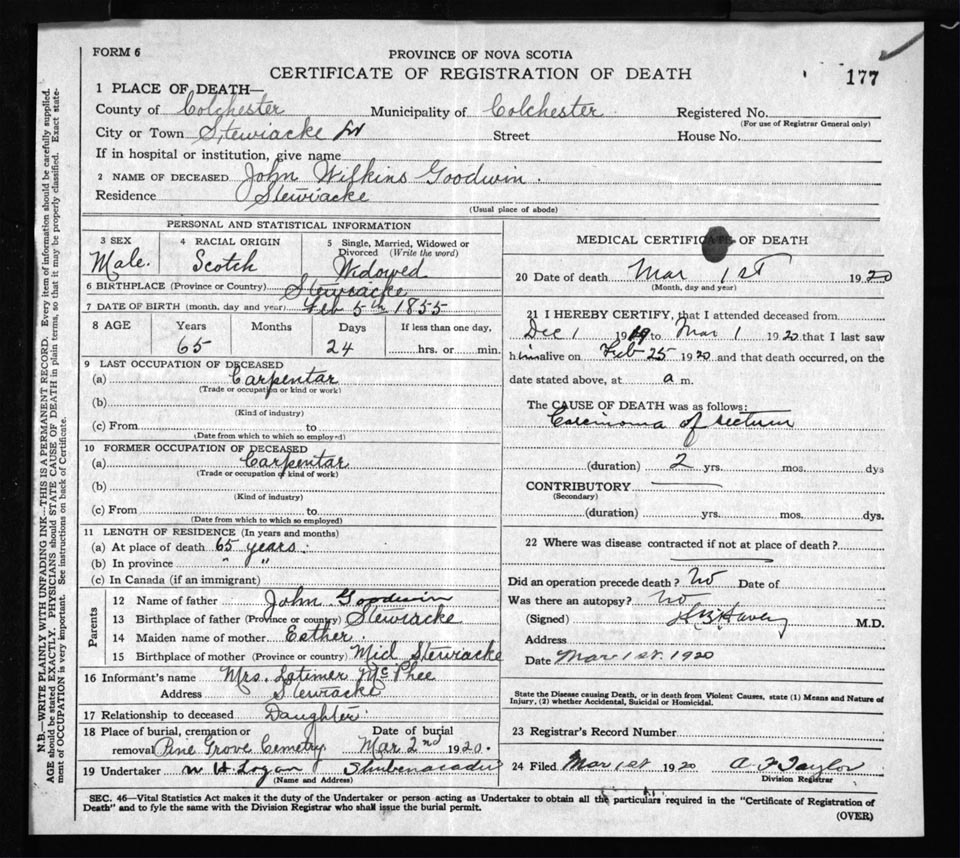 FORM 6
PROVINCE OF NOVA SCOTIA
CERTIFICATE OF REGISTRATION OF DEATH
177
1 PLACE OF DEATH—
County of Colchester Municipality of Colchester Registered No.
(For use of Registrar General only)
City or Town Stewiacke Street House No.
If in hospital or institution, give name
2 NAME OF DECEASED John Wilkins Goodwin.
Residence Stewiacke
(Usual place of abode)
PERSONAL AND STATISTICAL INFORMATION
3 SEX Male.
4 RACIAL ORIGIN Scotch
5 Single, Married, Widowed or Divorced (Write the word) Widowed
6 BIRTHPLACE (Province or Country) Stewiacke
7 DATE OF BIRTH (month, day and year) Feb 5th 1855
8 AGE Years Months Days If less than one day.
65 24 hrs. or min.
9 LAST OCCUPATION OF DECEASED
(a) Carpentar
(Trade or occupation or kind or work)
(b)
(Kind of industry)
(c) From to
(Date from which to which so employed)
10 FORMER OCCUPATION OF DECEASED
(a) Carpentar
(Trade or occupation or kind of work)
(b)
(Kind of industry)
(c) From to
(Date from which to which so employed)
11 LENGTH OF RESIDENCE (In years and months)
(a) At place of death 65 years.
(b) In province " "
(c) In Canada (if an immigrant)
Parents
12 Name of father John Goodwin
13 Birthplace of father (Province or country) Stewiacke
14 Maiden name of mother Esther.
15 Birthplace of mother (Province or country) Mid Stewiacke
16 Informant's name Mrs. Latimer McPhee
Address Stewiacke
17 Relationship to deceased Daughter.
18 Place of burial, cremation or removal Pine Grove Cemetry Date of burial Mar 2nd 1920.
19 Undertaker W H Logan Shubenacadie
(Name and Address)
MEDICAL CERTIFICATE OF DEATH
20 Date of death Mar 1st 1920
(Month, day and year)
21 I HEREBY CERTIFY, that I attended deceased from
Dec 1 1919 to Mar 1 1920 that I last saw
h im alive on Feb 25 1920 and that death occurred, on the
date stated above, at a m.
The CAUSE OF DEATH was as follows:
Carcinoma of rectum
(duration) 2 yrs. mos. dys
CONTRIBUTORY
(Secondary)
(duration) yrs. mos. dys.
22 Where was disease contracted if not at place of death?
Did an operation precede death? No Date of
Was there an autopsy? No
(Signed) M.D.
Address
Date Mar 1st. 1920
State the Disease causing Death, or in death from Violent Causes, state (1) Means and Nature of
Injury, (2) whether Accidental, Suicidal or Homicidal.
23 Registrar's Record Number
24 Filed Mar 1st 1920 A F Taylor
Division Registrar
SEC. 46—Vital Statistics Act makes it the duty of the Undertaker or person acting as Undertaker to obtain all the particulars required in the "Certificate of Registration of
Death" and to fyle the same with the Division Registrar who shall issue the burial permit.
(OVER)
N.B.—WRITE PLAINLY WITH UNFADING INK—THIS IS A PERMANENT RECORD. Every item of information should be carefully supplied.
AGE should be stated EXACTLY. PHYSICIANS should STATE CAUSE OF DEATH in plain terms, so that it may be properly classified. Exact state-
ment of OCCUPATION is very important. See instructions on back of Certificate.